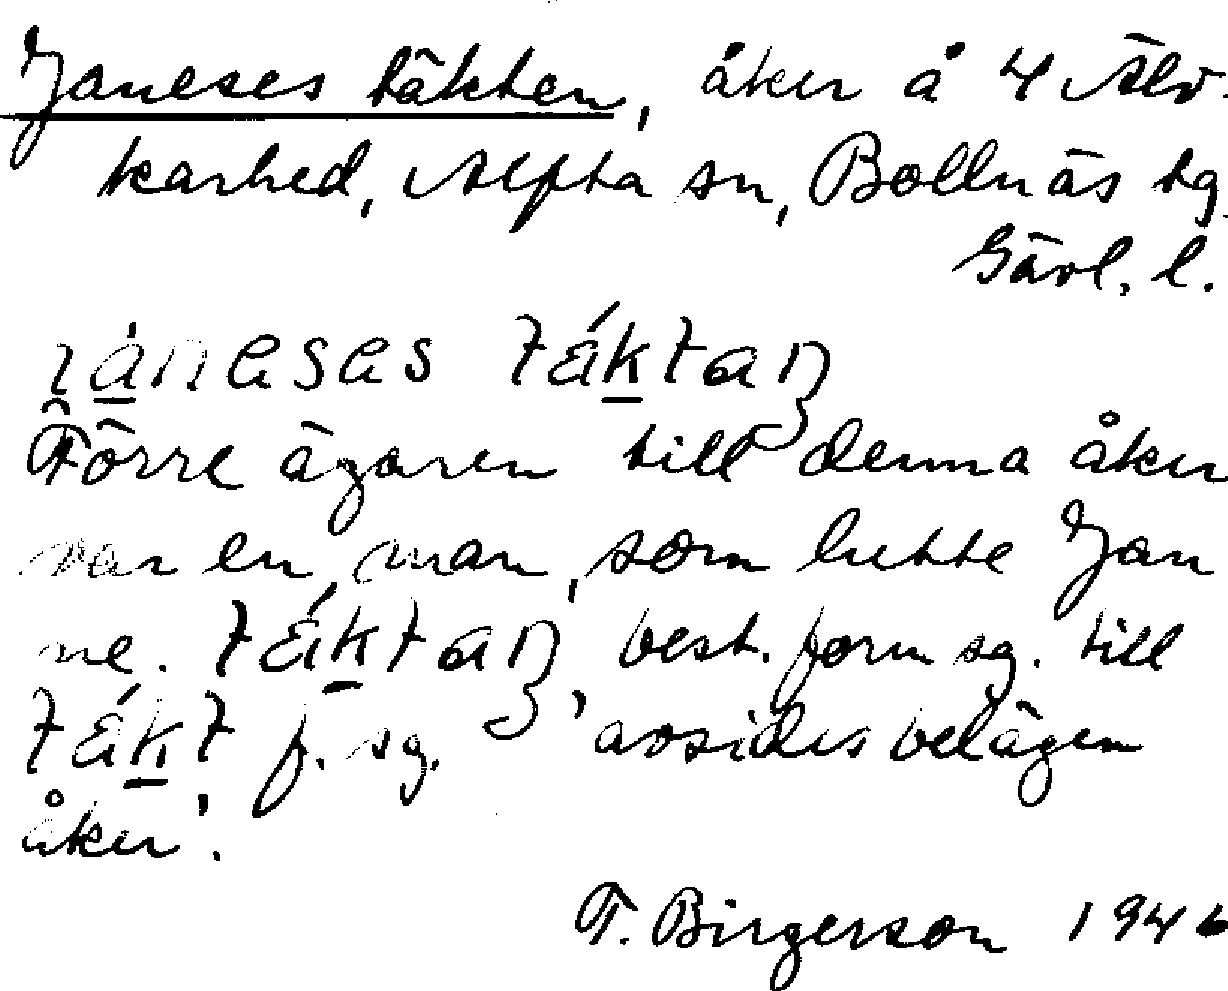 Janeses täkten, åker å 4 Älv-
karhed, Alfta sn, Bollnäs tg.
Gävl. l.
janeses táktaŋ
Förre ägaren till denna åker
var en man, som hette Jan
ne. táktaŋ, best. form sg. till
tákt f. sg. 'avsides belägen
åker'.
T. Birgerson 1946